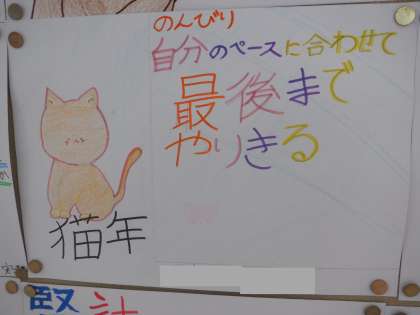 のんびり
自分のペースに合わせて
最後まで
やりきる
猫年
堅計